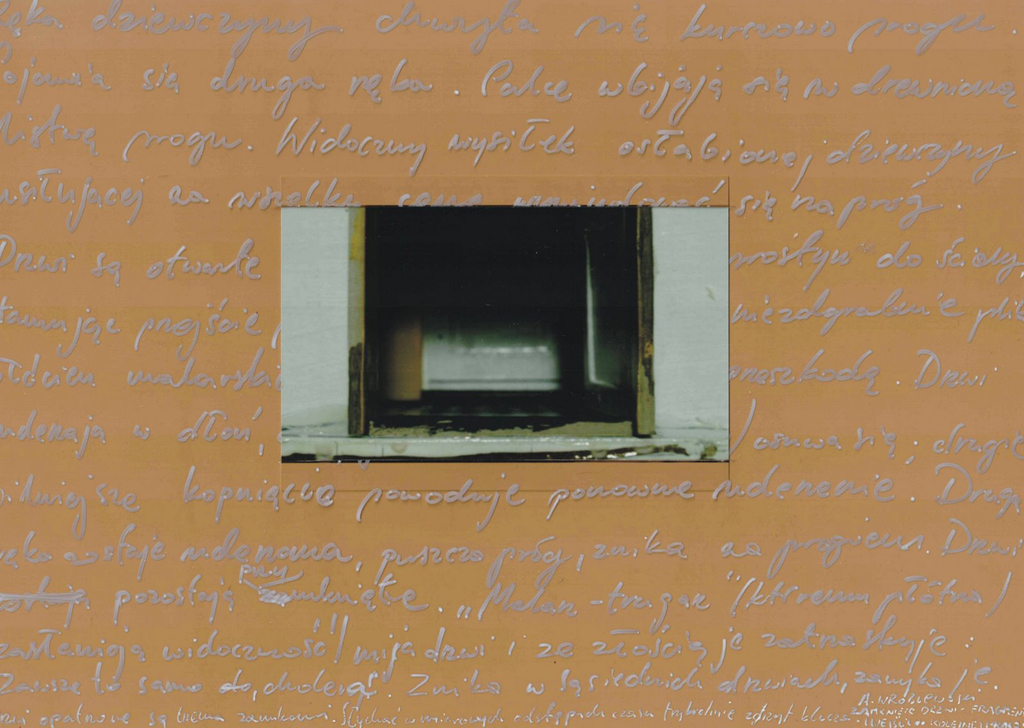 ręka dziewczyny chwyta się kurczowo progu.
Pojawia się druga ręka. Palce wbijają się w drewnianą
listwę progu. Widoczny wysiłek osłabionej dziewczyny
usiłującej za wszelką cenę się na próg.
Drzwi są otwarte prostym" do ściany,
tamując przejście niezdgrabnie
malarski przeszkodą. Drzwi
uderzają w dłoń, osuwa się; drugie
silniejsze kopnięcie powoduje ponowne uderzenie. Druga
ręka zostaje uderzona, puszcza próg, znika za progiem. Drzwi
pozostają przymknięte. „Malarz-tragarz" (któremu płótna)
zasłaniają widoczność! mija drzwi i ze złością je zatrzaskuje:
Zawsze to samo do, cholera". Znika w sąsiednich drzwiach, zamyka je.
opatrzone są trzema zamkami. Słychać w miarowych odstępach czasu trzykrotnie zgrzyt klucza
A. WRÓBLEWSKI
ZAMKNIĘTE DRZWI - FRAGMENT